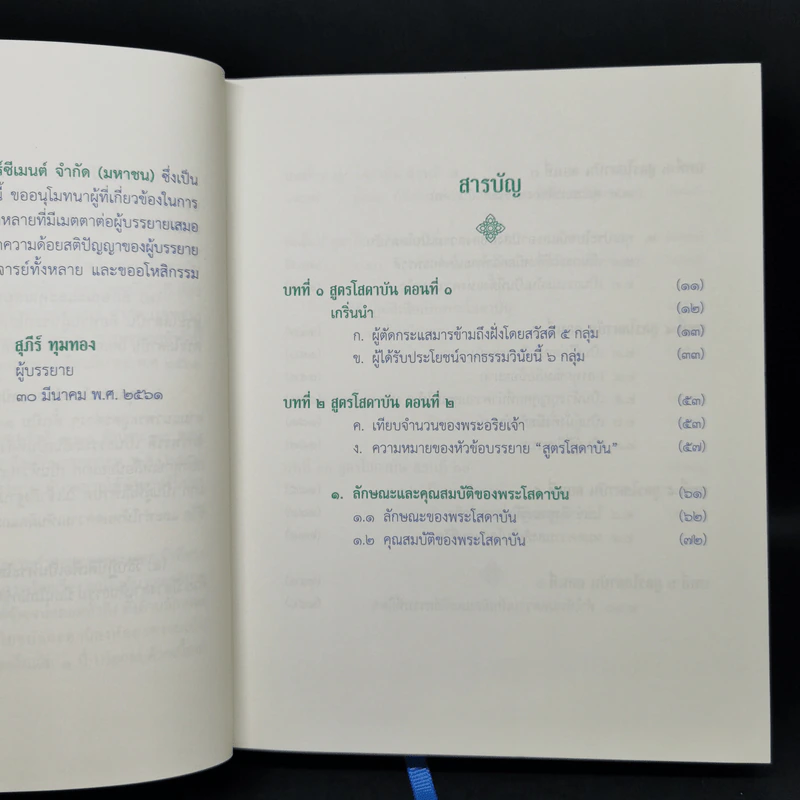 ร์ซีเมนต์ จำกัด (มหาชน) ซึ่งเป็น
ขออนุโมทนาผู้ที่เกี่ยวข้องในการ
หลายที่มีเมตตาต่อผู้บรรยายเสมอ
ความด้อยสติปัญญาของผู้บรรยาย
จารย์ทั้งหลาย และขออโหสิกรรม
สุภีร์ ทุมทอง
ผู้บรรยาย
๓๐ มีนาคม พ.ศ. ๒๕๖๑
สารบัญ
บทที่ ๑ สูตรโสดาบัน ตอนที่ ๑ (๑๑)
เกริ่นนำ (๑๒)
ก. ผู้ตัดกระแสมารข้ามถึงฝั่งโดยสวัสดี ๕ กลุ่ม (๑๓)
ข. ผู้ได้รับประโยชน์จากธรรมวินัยนี้ ๖ กลุ่ม (๓๓)
บทที่ ๒ สูตรโสดาบัน ตอนที่ ๒ (๕๓)
ค. เทียบจำนวนของพระอริยเจ้า (๕๓)
ง. ความหมายของหัวข้อบรรยาย “สูตรโสดาบัน” (๕๗)
๑. ลักษณะและคุณสมบัติของพระโสดาบัน (๖๑)
๑.๑ ลักษณะของพระโสดาบัน (๖๒)
๑.๒ คุณสมบัติของพระโสดาบัน (๗๒)